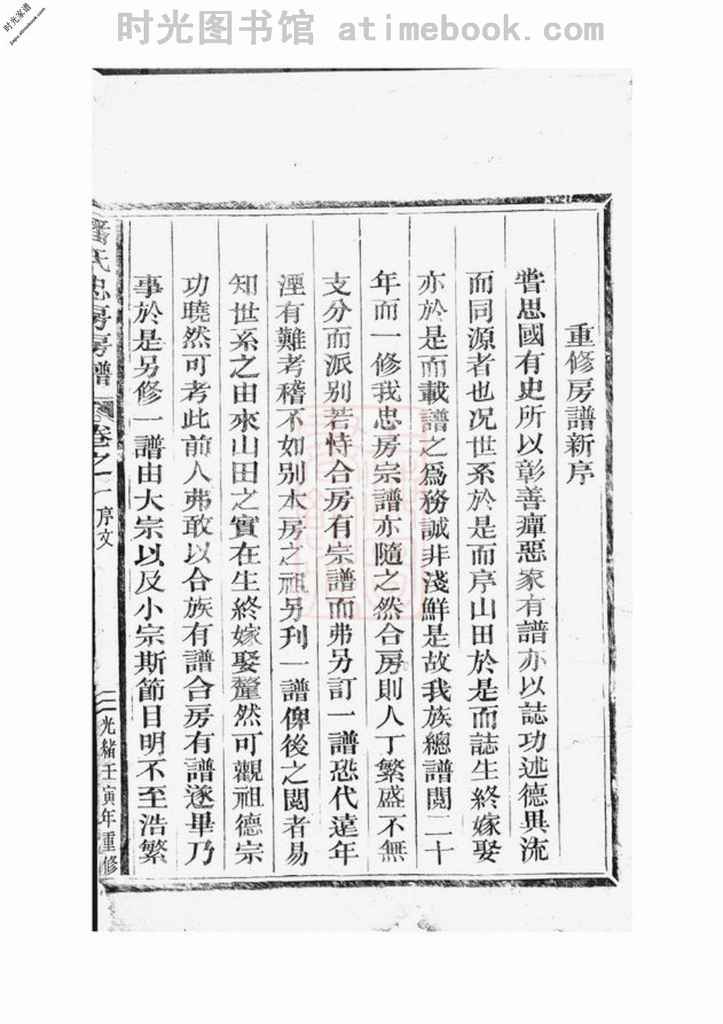 时光家谱
jiapu.atimebook.com
时光图书馆 atimebook.com
重修房譜新序
嘗思國有史所以彰善癉惡家有譜亦以誌功述德異流
而同源者也况世系於是而序山田於是而誌生終嫁娶
亦於是而載譜之爲務誠非淺鮮是故我族總譜閱二十
年而一修我忠房宗譜亦隨之然合房則人丁繁盛不無
支分而派別若恃合房有宗譜而弗另訂一譜恐代遠年
湮有難考稽不如別本房之祖另刋一譜俾後之閱者易
知世系之由來山田之實在生終嫁娶釐然可觀祖德宗
功曉然可考此前人弗敢以合族有譜合房有譜遂畢乃
事於是另修一譜由大宗以及小宗斯節目明不至浩繁
氏忠房房譜 卷之一 序文 三 光緒壬寅年重修